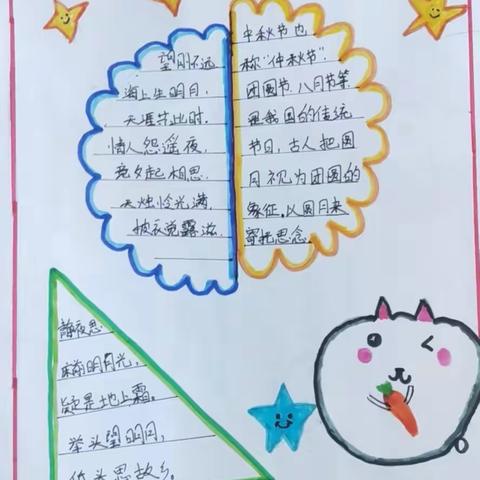 望月怀远
海上生明月,
天涯共此时.
情人怨遥夜,
竟夕起相思.
灭烛怜光满,
披衣觉露滋.
中秋节也
称“仲秋节”.
团圆节、八月节等
是我国的传统
节日,古人把圆
月视为团圆的
象征.以圆月来
寄托思念
静夜思
床前明月光,
疑是地上霜。
举头望明月,
低头思故乡。